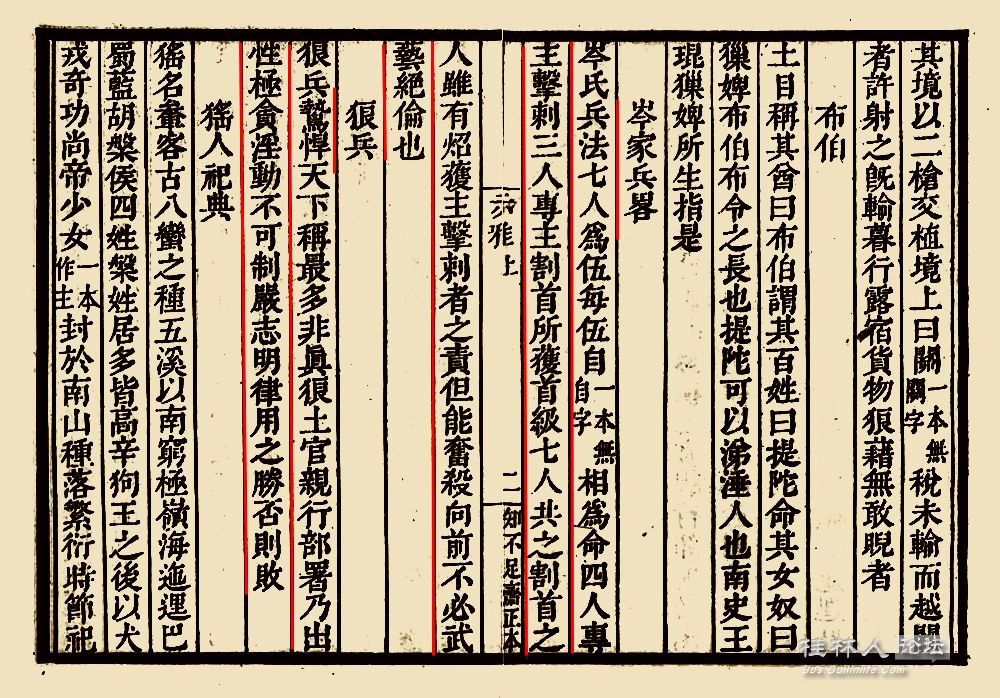 其境以二槍交植境上曰關一本無關字稅未輸而越關
者許射之旣輸暮行露宿貨物狼藉無敢睨者
布伯
土目稱其酋曰布伯謂其百姓曰提陀命其女奴曰
獵婢布伯布令之長也提陀可以涕涶人也南史王
琨獵婢所生指是
岑家兵畧
岑氏兵法七人爲伍每伍自一本無自字相爲命四人專
主擊刺三人專主割首所獲首級七人共之割首之
赤雅上 二 知不足齋正本
人雖有炤獲主擊刺者之責但能奮殺向前不必武
藝絕倫也
狼兵
狼兵鷙悍天下稱最多非眞狼土官親行部署乃出
性極貪淫動不可制嚴志明律用之勝否則敗
猺人祀典
猺名輋客古八蠻之種五溪以南窮極嶺海迤邐巴
蜀藍胡槃侯四姓槃姓居多皆高辛狗王之後以犬
戎奇功尚帝少女一本作主封於南山種落繁衍時節祀
桂林人论坛
Bbs.Guilinlife.Com